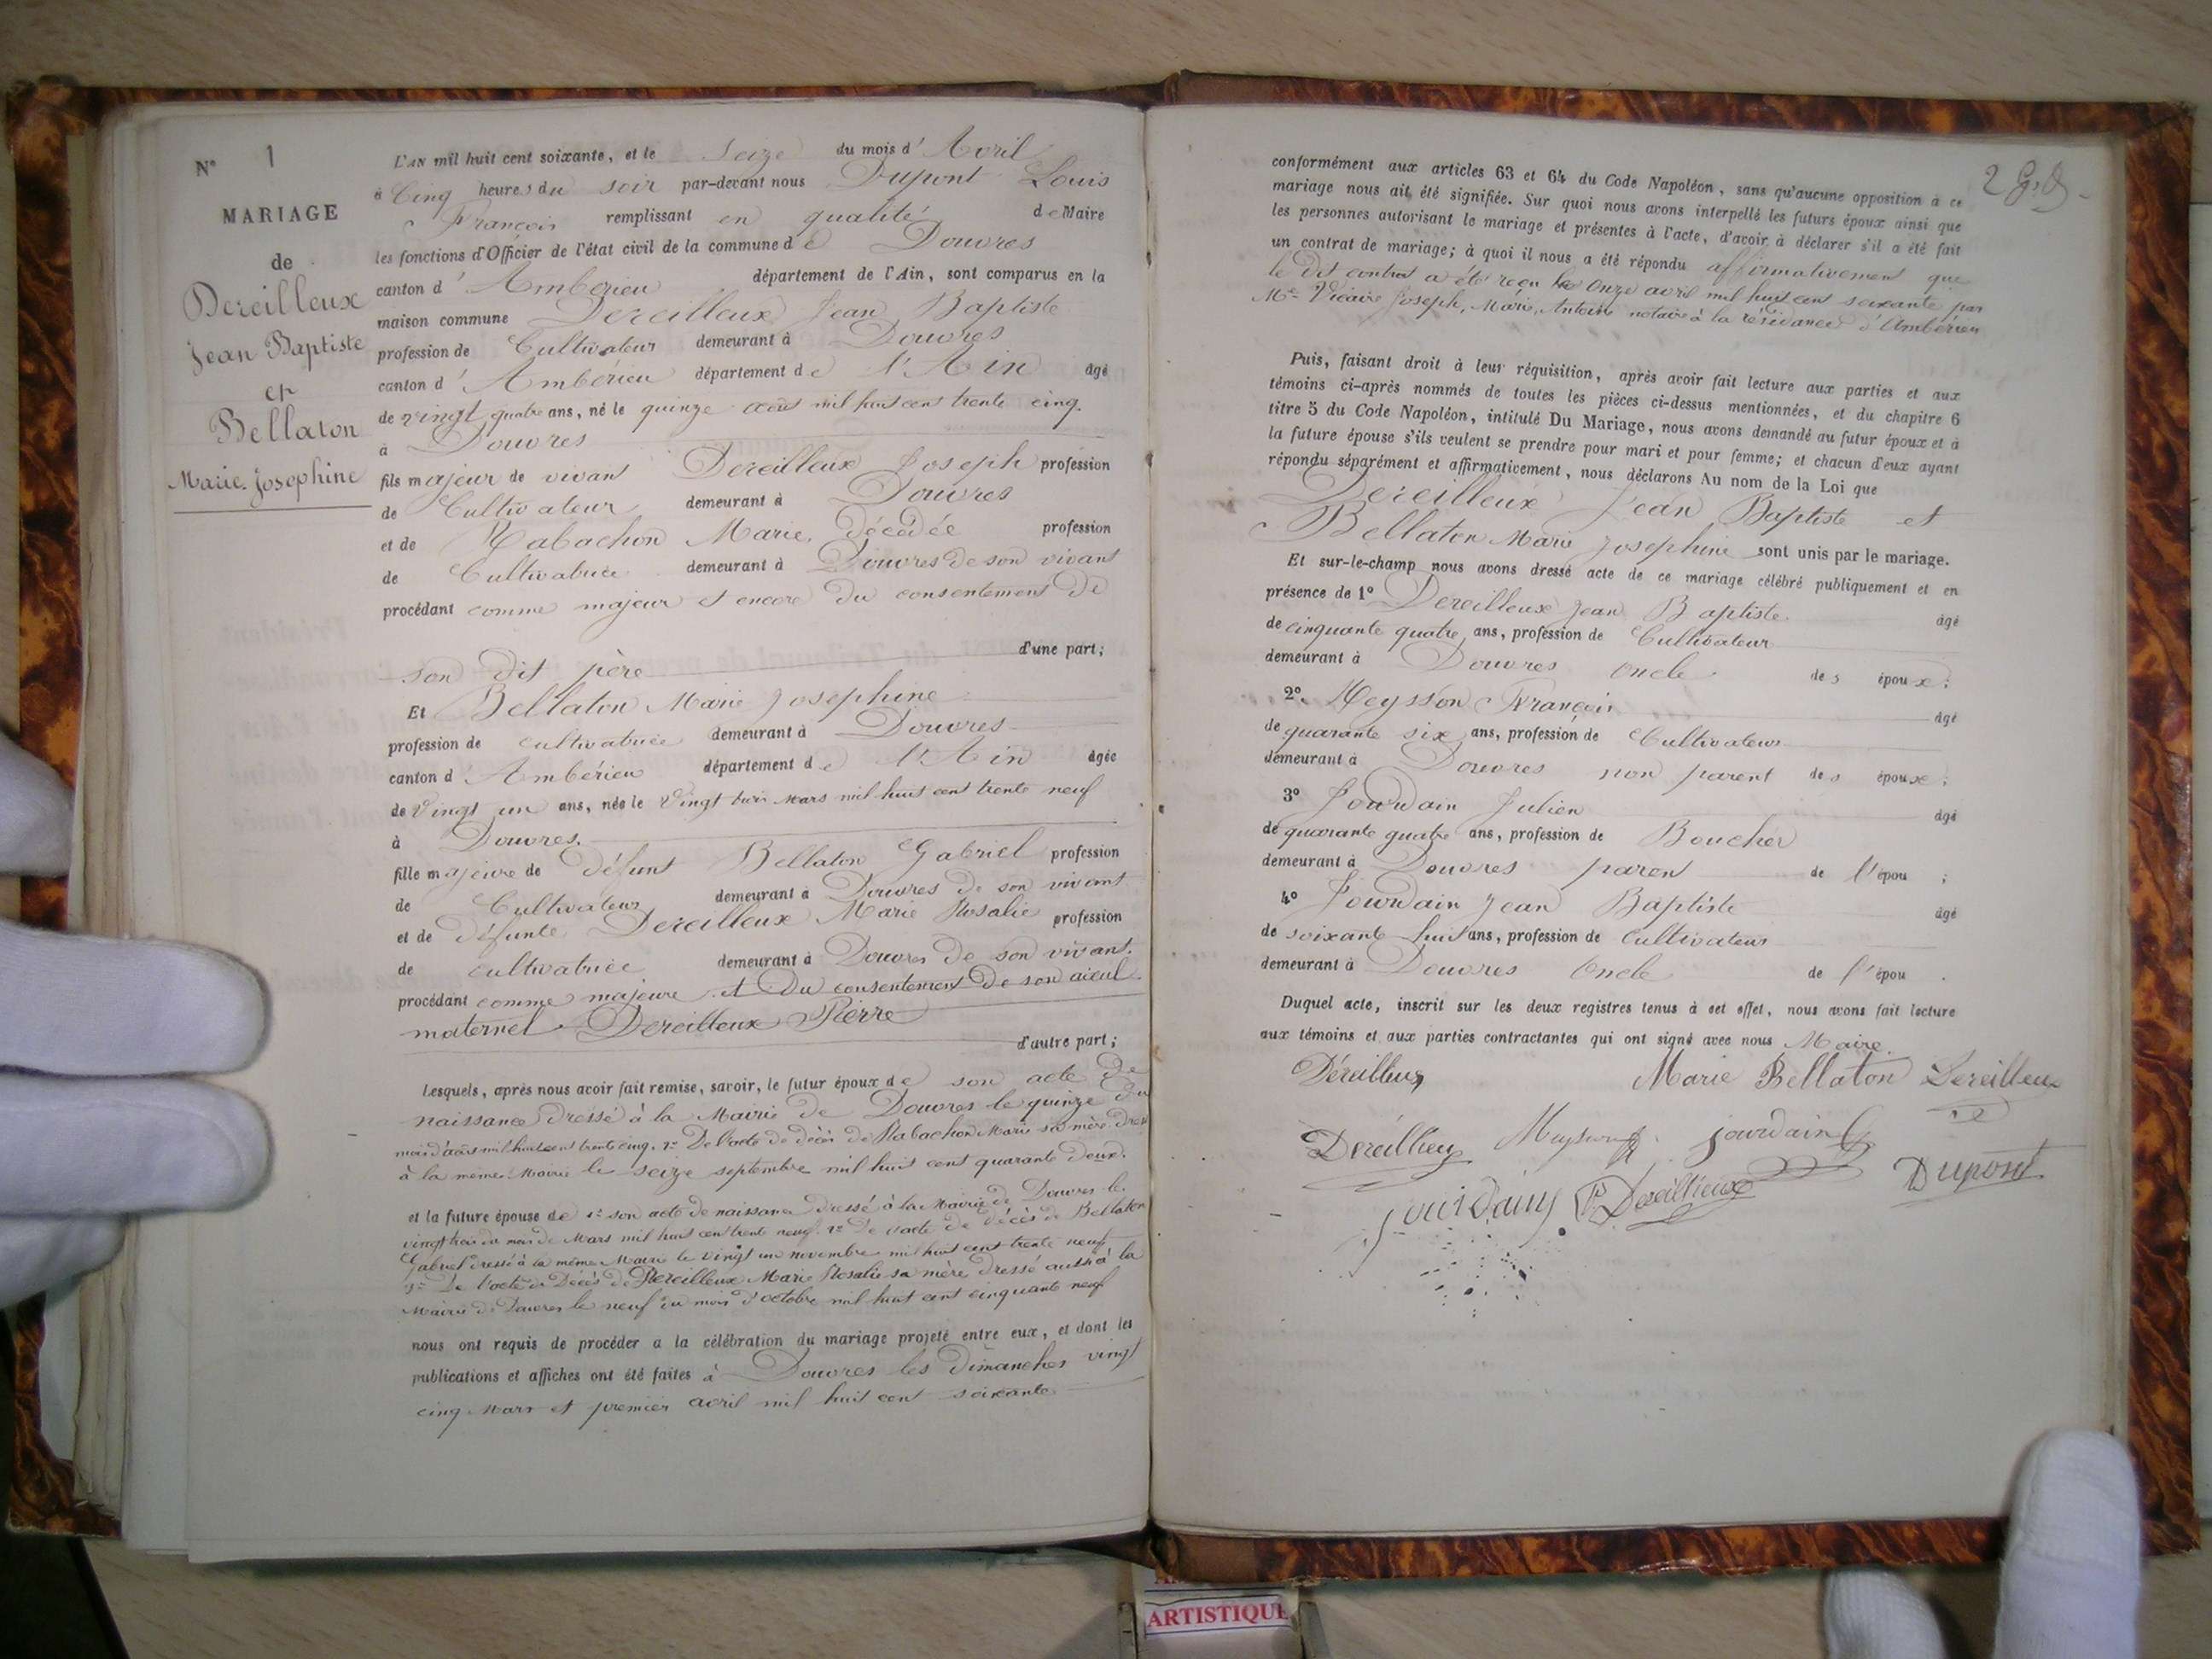 N° 1
MARIAGE
de
Dereilleux
Jean Baptiste
et
Bellaton
Marie Josephine
L'AN mil huit cent soixante, et le Seize du mois d'Avril
à Cinq heures du soir par-devant nous Dupont Louis
François remplissant en qualité de Maire
les fonctions d'Officier de l'état civil de la commune de Douvres
canton d'Ambérieu département de l'Ain, sont comparus en la
maison commune Dereilleux Jean Baptiste
profession de Cultivateur demeurant à Douvres
canton d'Ambérieu département de l'Ain âgé
de vingt quatre ans, né le quinze aout mil huit cent trente cinq.
à Douvres
fils majeur de vivant Dereilleux Joseph profession
de Cultivateur demeurant à Douvres
et de Rabachon Marie, décédée profession
de Cultivatrice demeurant à Douvres de son vivant
procédant comme majeur et encore du consentement de
son dit père d'une part;
Et Bellaton Marie Josephine
profession de cultivatrice demeurant à Douvres
canton d'Ambérieu département de l'Ain âgée
de Vingt un ans, née le Vingt trois Mars mil huit cent trente neuf
à Douvres.
fille majeure de défunt Bellaton Gabriel profession
de Cultivateur demeurant à Douvres de son vivant
et de défunte Dereilleux Marie Rosalie profession
de cultivatrice demeurant à Douvres de son vivant.
procédant comme majeure et du consentement de son aieul
maternel Dereilleux Pierre
d'autre part;
Lesquels, après nous avoir fait remise, savoir, le futur époux de son acte de
naissance dressé à la Mairie de Douvres le quinze du
mois d'aout mil huit cent trente cinq. 2° De l'acte de décès de Rabachon Marie sa mère dressé
à la même Mairie le seize septembre mil huit cent quarante deux.
et la future épouse de 1° son acte de naissance dressé à la Mairie de Douvres le
vingt trois du mois de Mars mil huit cent trente neuf. 2° De l'acte de décès de Bellaton
Gabriel dressé à la même Mairie le vingt un novembre mil huit cent trente neuf
3° De l'acte de Décès de Dereilleux Marie Rosalie sa mère dressé aussi à la
Mairie de Douvres le neuf du mois d'octobre mil huit cent cinquante neuf
nous ont requis de procéder a la célébration du mariage projeté entre eux, et dont les
publications et affiches ont été faites à Douvres les Dimanches vingt
cinq Mars et premier avril mil huit cent soixante
2
conformément aux articles 63 et 64 du Code Napoléon, sans qu'aucune opposition à ce
mariage nous ait été signifiée. Sur quoi nous avons interpellé les futurs époux ainsi que
les personnes autorisant le mariage et présentes à l'acte, d'avoir à déclarer s'il a été fait
un contrat de mariage; à quoi il nous a été répondu affirmativement que
le dit contrat a été reçu le Onze avril mil huit cent soixante par
Me Vicaire Joseph, Marie, Antoine notaire à la résidance d'Ambérieu
Puis, faisant droit à leur réquisition, après avoir fait lecture aux parties et aux
témoins ci-après nommés de toutes les pièces ci-dessus mentionnées, et du chapitre 6
titre 5 du Code Napoléon, intitulé Du Mariage, nous avons demandé au futur époux et à
la future épouse s'ils veulent se prendre pour mari et pour femme; et chacun d'eux ayant
répondu séparément et affirmativement, nous déclarons Au nom de la Loi que
Dereilleux Jean Baptiste et
Bellaton Marie Josephine sont unis par le mariage.
Et sur-le-champ nous avons dressé acte de ce mariage célébré publiquement et en
présence de 1° Dereilleux Jean Baptiste âgé
de cinquante quatre ans, profession de Cultivateur
demeurant à Douvres Oncle des époux;
2° Meysson François âgé
de quarante six ans, profession de Cultivateur
demeurant à Douvres non parent des époux;
3° Jourdain Julien âgé
de quarante quatre ans, profession de Boucher
demeurant à Douvres parent de l'épou ;
4° Jourdain Jean Baptiste âgé
de soixante huit ans, profession de cultivateur
demeurant à Douvres Oncle de l'épou .
Duquel acte, inscrit sur les deux registres tenus à cet effet, nous avons fait lecture
aux témoins et aux parties contractantes qui ont signé avec nous Maire.
Déreilleux Marie Bellaton Dereilleux
Dereilleux Meysson jourdain
jourdain P Dereilleux Dupont
ARTISTIQUE